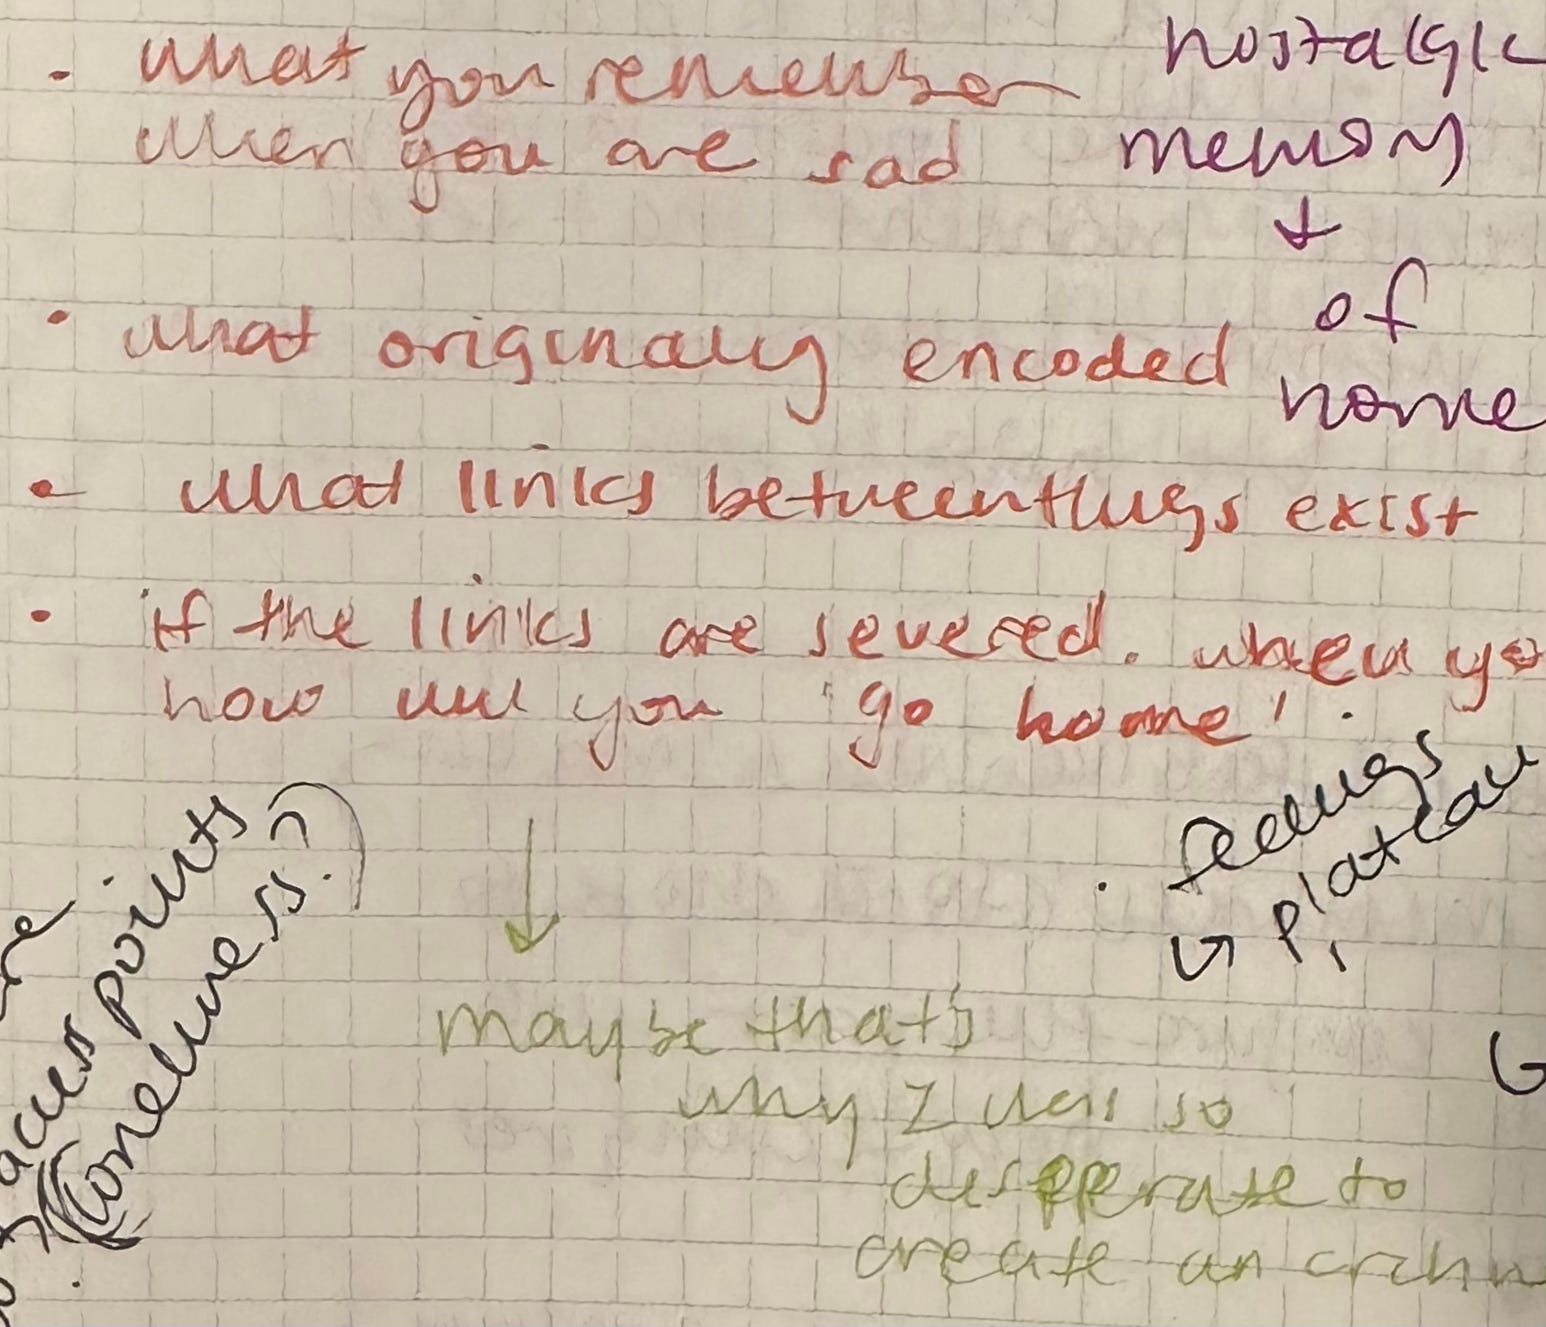 • what you remember
when you are sad
nostalgic
memory
↓
of
home
• what originally encoded
• what links between things exist
• if the links are severed. when yo
how will you 'go home'.
• feelings
↳ plateau
access points
(loneliness??)
↓
maybe that's
why I was so
desperate to
create an archiv